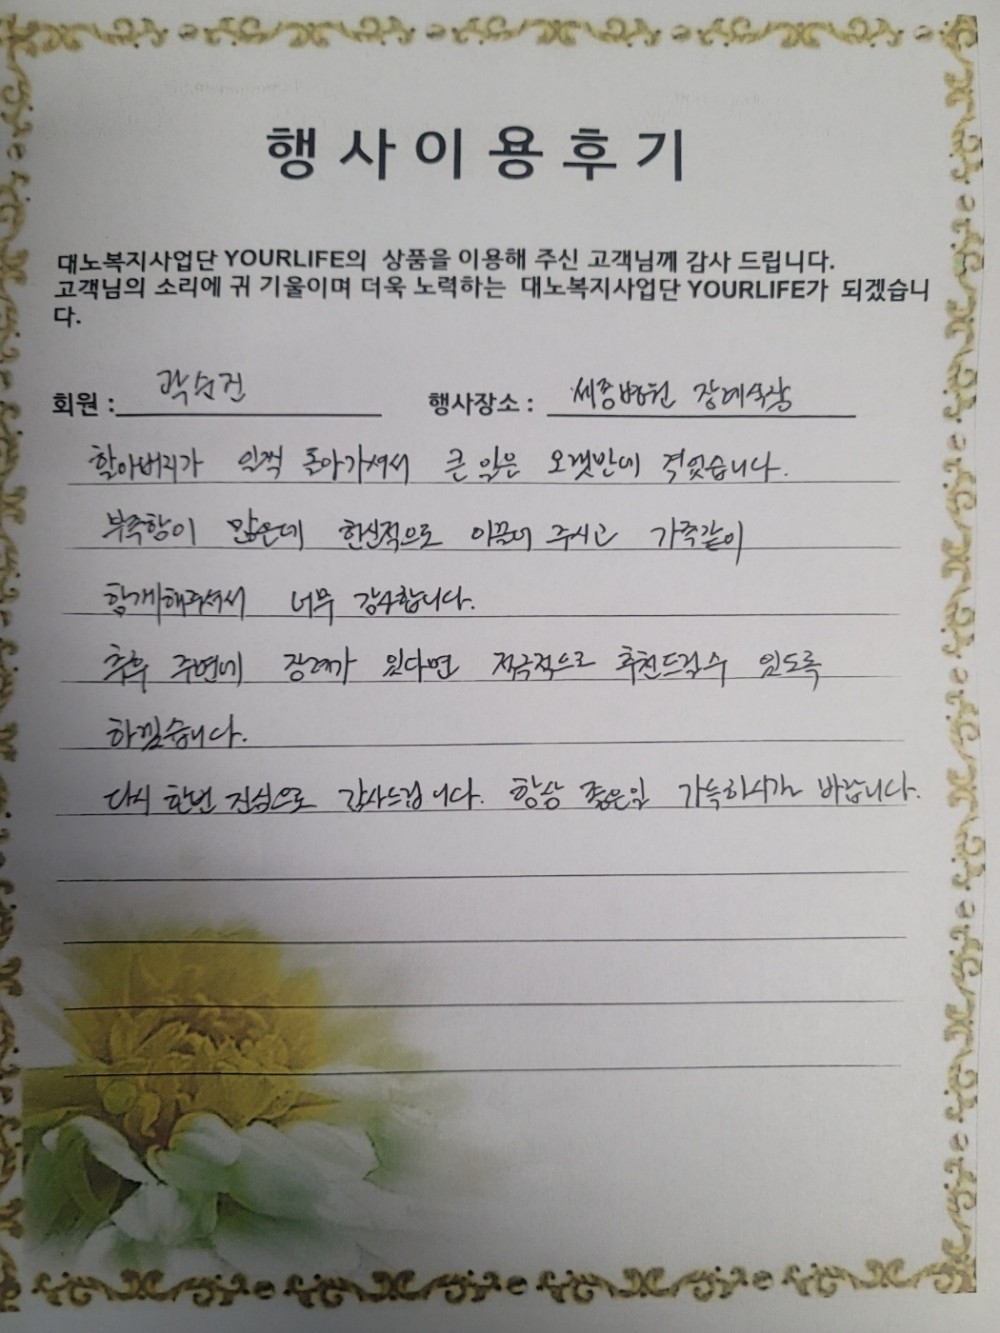 행사이용후기
대노복지사업단 YOURLIFE의 상품을 이용해 주신 고객님께 감사 드립니다.
고객님의 소리에 귀 기울이며 더욱 노력하는 대노복지사업단 YOURLIFE가 되겠습니
다.
회원 : 곽순건 행사장소 : 세종병원 장례식장
할아버지가 일찍 돌아가셔서 큰 일은 오랫만에 겪었습니다.
부족함이 많은데 헌신적으로 이끌어 주시고 가족같이
함께해주셔서 너무 감사합니다.
추후 주변에 장례가 있다면 적극적으로 추천드릴수 있도록
하겠습니다.
다시 한번 진심으로 감사드립니다. 항상 좋은일 가득하시기를 바랍니다.